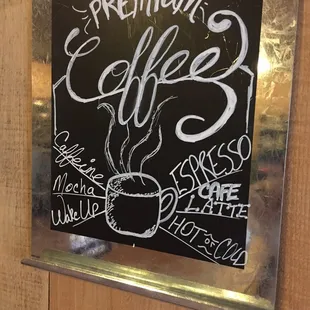 PREMIUM
Coffee
Caffeine
Mocha
Wake Up
ESPRESSO
CAFE
LATTE
HOT or COLD